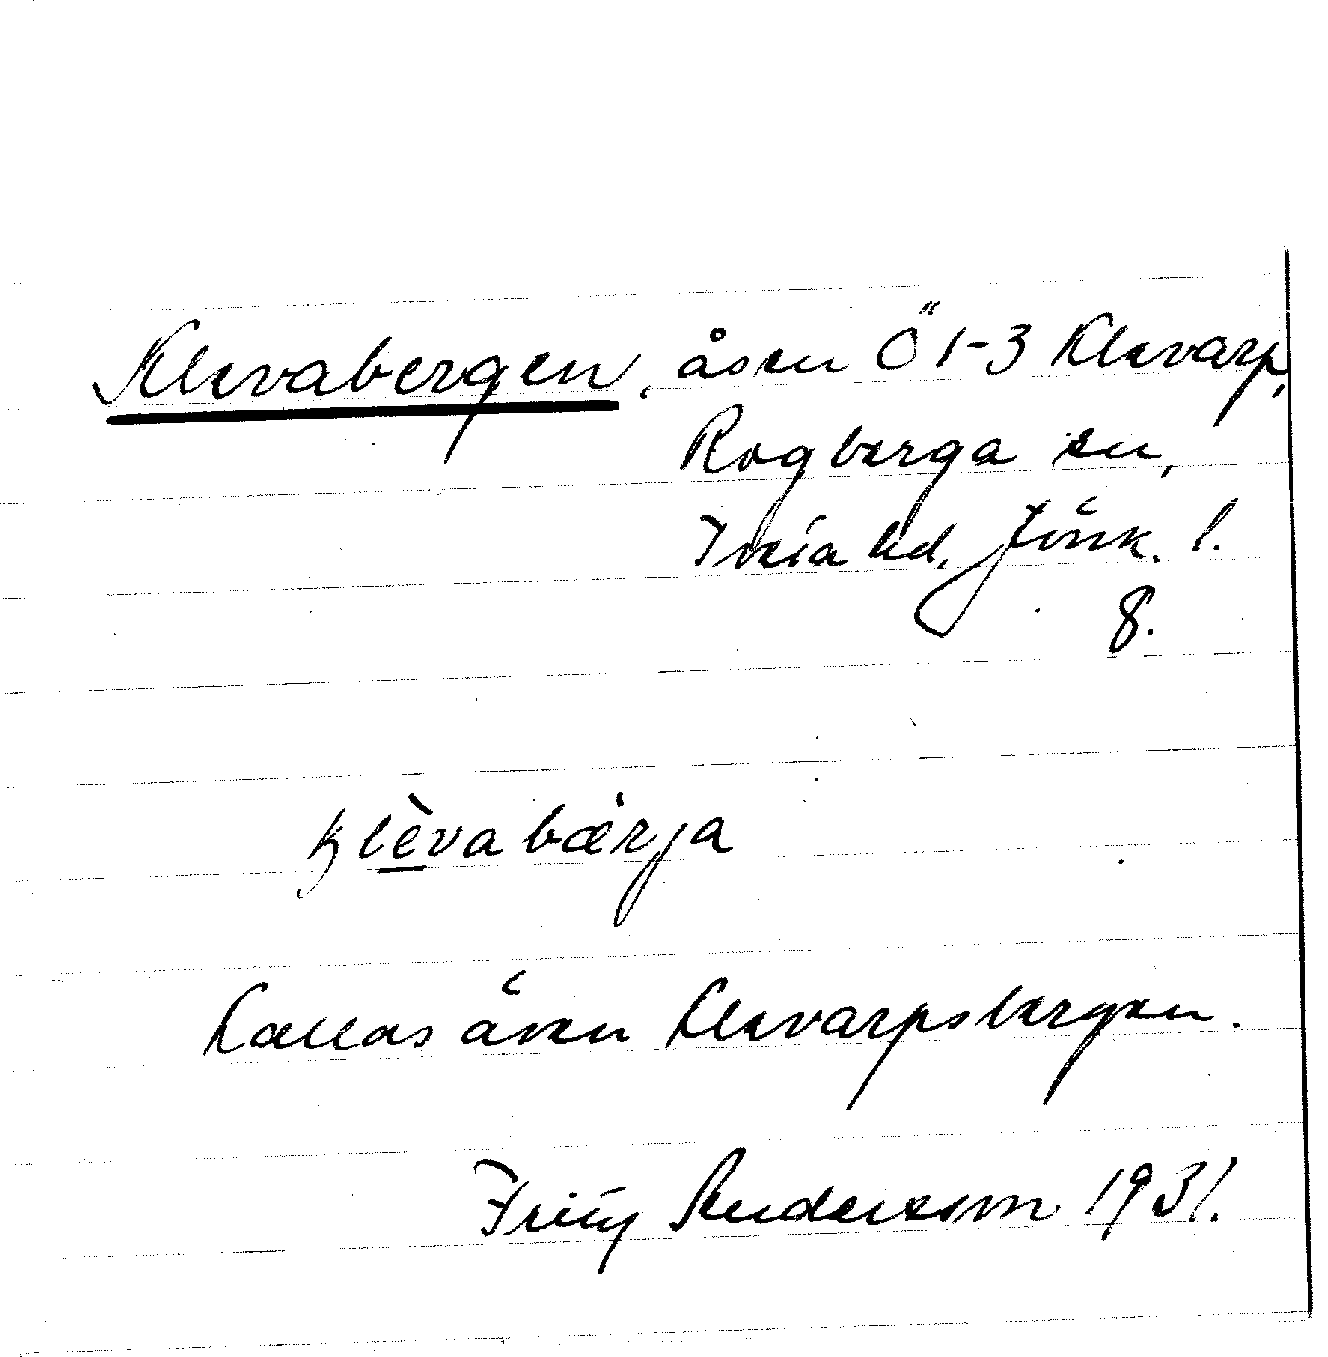 Klevabergen, åsen Ö 1-3 Klevarp,
Rogberga sn,
Tveta hd, Jönk. l.
8.
klèvabærja
Kallas även Klevarpsbergen.
Fritz Andersson 1931.